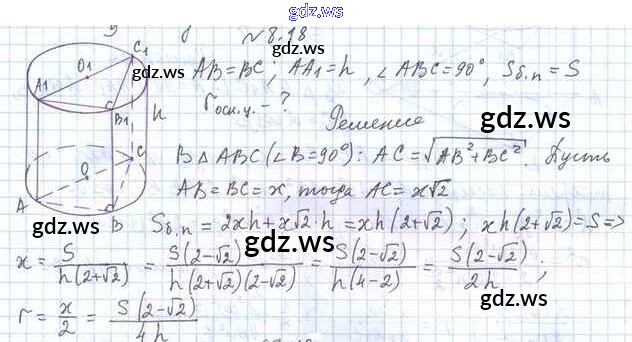 gdz.ws
№8.18
C1
A1 O1 B1
AB=BC; AA1=h, ∠ABC=90°, Sб.п=S
rосн.ц.-?
gdz.ws
h
Решение
O C
A B
В △ABC(∠B=90°): AC=√AB²+BC². Пусть
AB=BC=x, тогда AC=x√2
gdz.ws
Sб.п=2xh+x√2·h=xh(2+√2); xh(2+√2)=S=>
gdz.ws
x=S/h(2+√2)=S(2-√2)/h(2+√2)(2-√2)=S(2-√2)/h(4-2)=S(2-√2)/2h;
gdz.ws
r=x/2=S(2-√2)/4h
gdz.ws